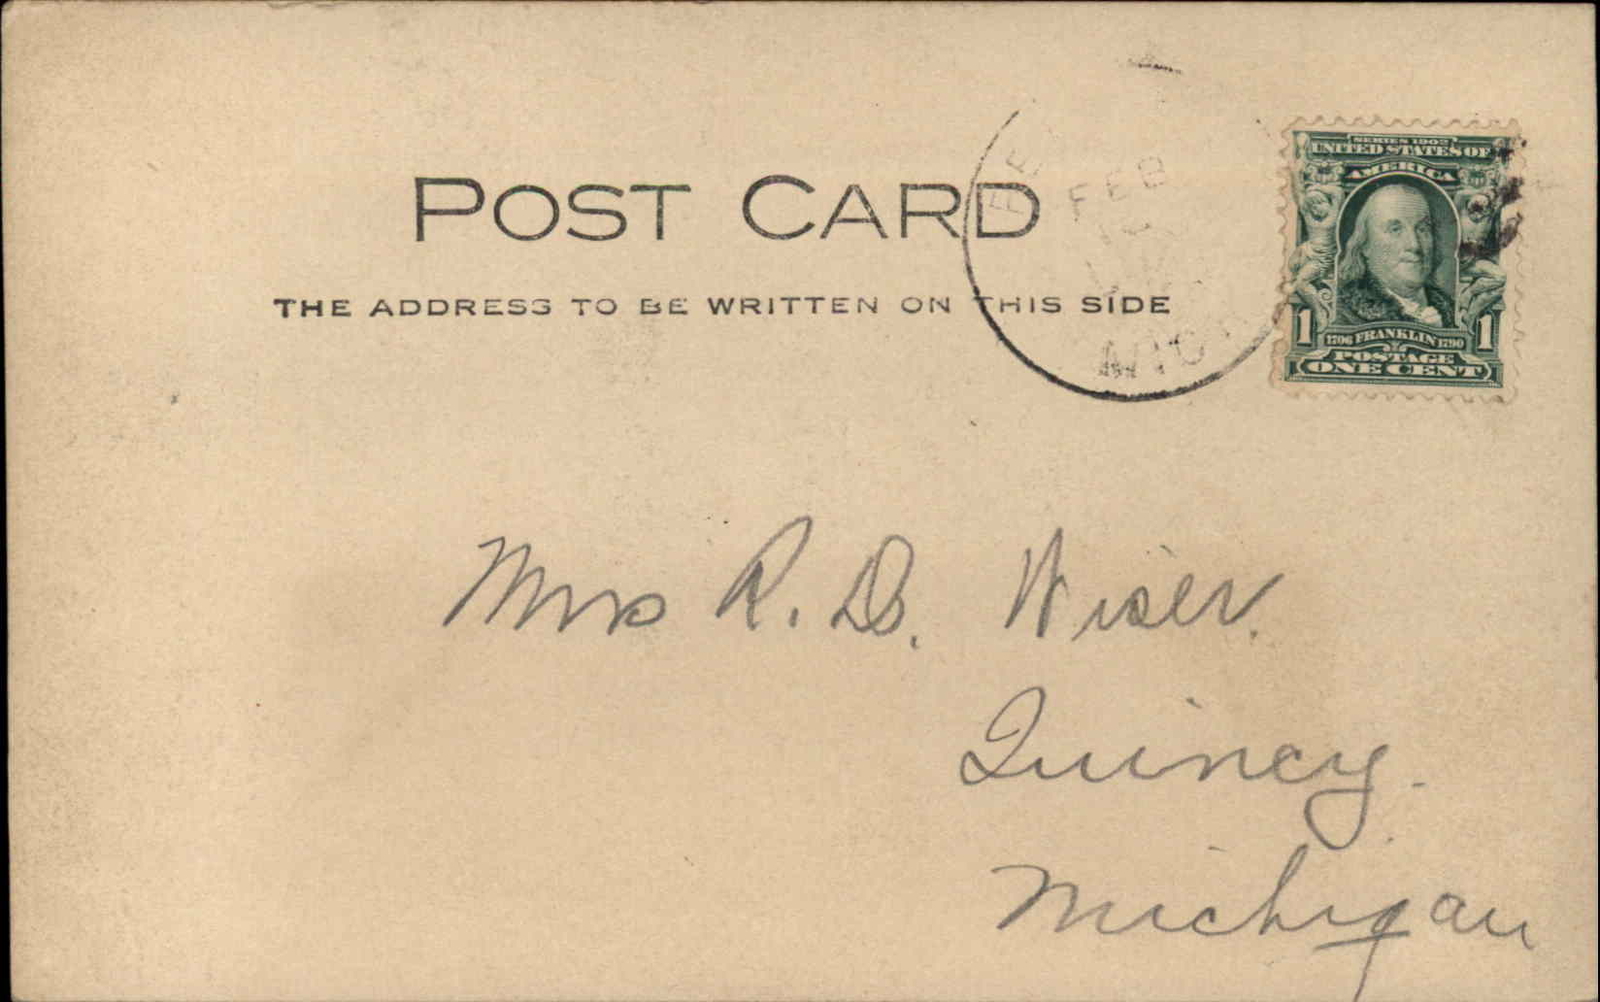 POST CARD
THE ADDRESS TO BE WRITTEN ON THIS SIDE
FEB
MICH
SERIES 1902
UNITED STATES OF
AMERICA
1 1
1706 FRANKLIN 1790
POSTAGE
ONE CENT
Mrs R. D. Wiser.
Quincy.
Michigan